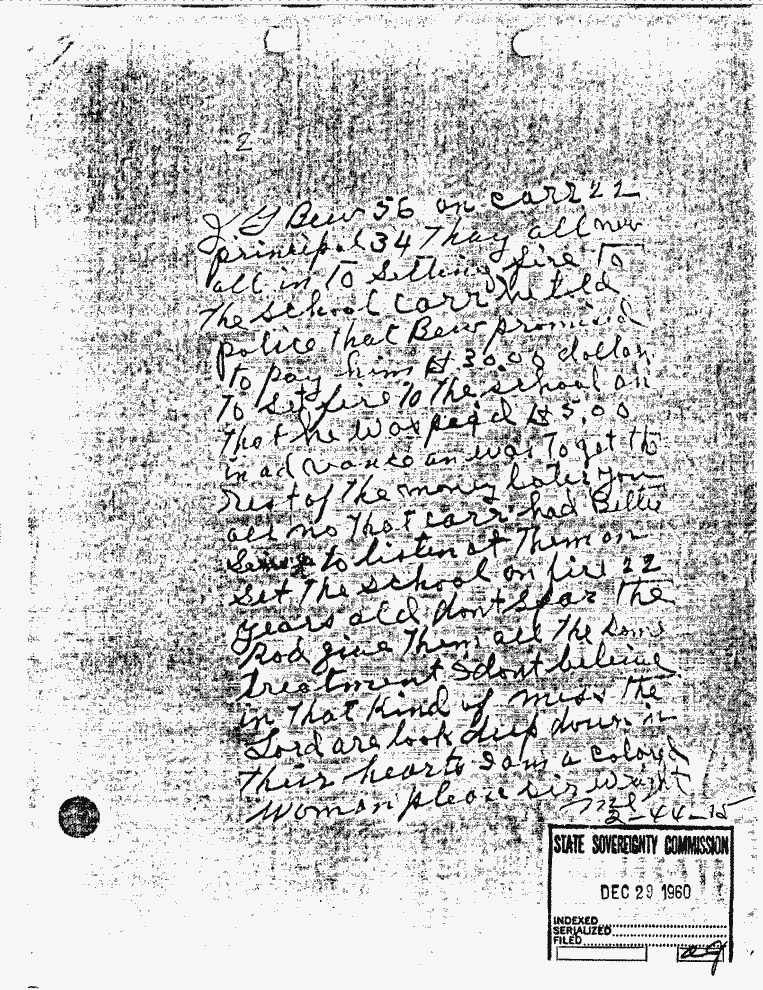 2
J G Bew 56 on carr 22
principal 34 Thay all new
all in To Setting fire To
The school carr he told
police That Bew promised
To pay him $30.00 dollar
To set fire To The school an
That he was paid $5.00
in advance an was To get the
rest of The money later you
all no That carr had Bettie
to listen at Them an
set The school on fire 22
years old dont Spar The
Rod give Them all The Same
treatment I dont believe
in That Kind of mess The
Lord are look deep down in
Their hearts I am a colored
Woman please sir wright
me
2-44-15
STATE SOVEREIGNTY COMMISSION
DEC 29 1960
INDEXED
SERIALIZED
FILED